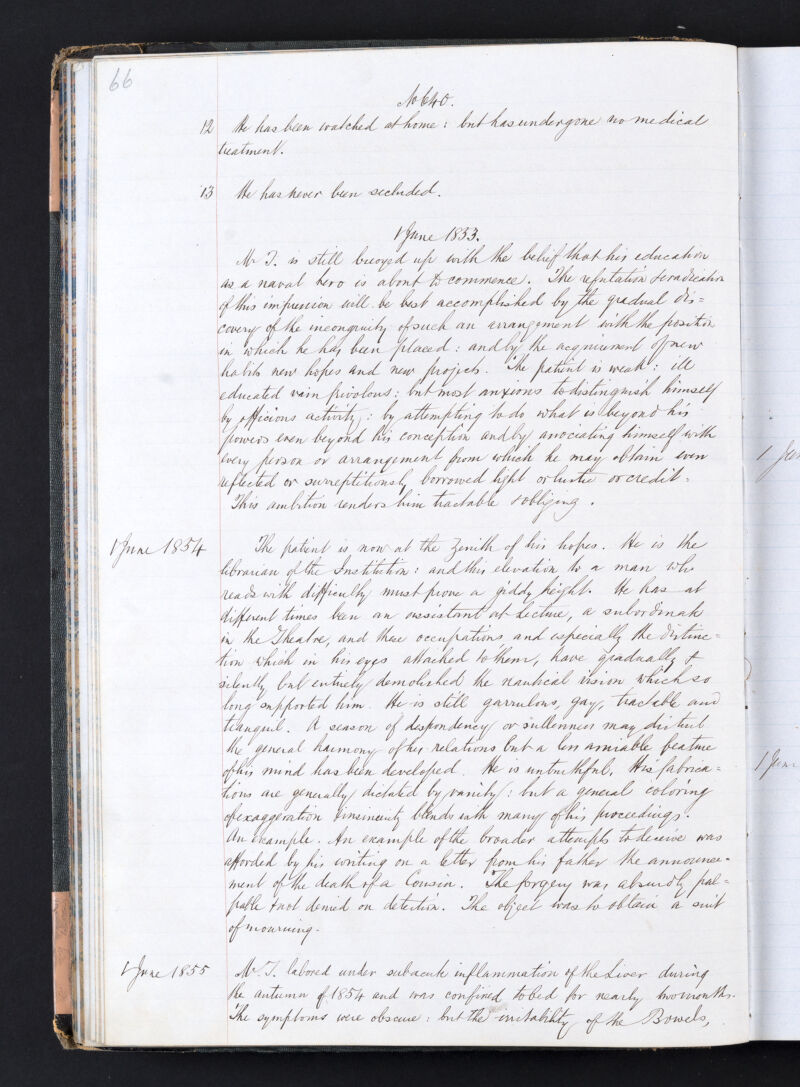 66
No 640.
12 He has been watched at home : but has undergone no medical
treatment.
13 He has never been secluded.
1 June 1853.
Mr T. is still buoyed up with the belief that his education
as a naval hero is about to commence. The refutation & eradication
of this impression will be best accomplished by the gradual dis=
covery of the incongruity of such an arrangement with the position
in which he has been placed : and by the acquirement of new
habits new hopes and new projects. The patient is weak : ill
educated vain frivolous : but most anxious to distinguish himself
by officious activity : by attempting to do what is beyond his
powers even beyond his conception and by associating himself with
every person or arrangement from which he may obtain even
reflected or surreptitiously borrowed light or lustre or credit.
This ambition renders him tractable & obliging.
1 June 1854 The patient is now at the Zenith of his hopes. He is the
librarian of the Institution : and this elevation to a man who
reads with difficulty must prove a giddy height. He has at
different times been an assistant at Lecture, a subordinate
in the Theatre, and these occupations and especially the distinc=
tion which in his eyes attached to them, have gradually &
silently but entirely demolished the nautical vision which so
long supported him. He is still garrulous, gay, tractable and
tranquil. A season of despondency or sullenness may disturb
the general harmony of his relations but a less amiable feature
of his mind has been developed. He is untruthful. His fabrica=
tions are generally dictated by vanity : but a general coloring
of exaggeration & insincerity blends with many of his proceedings.
An example. An example of the broader attempts to deceive was
afforded by his writing on a letter from his father the announce=
ment of the death of a Cousin. The forgery was absurdly pal=
pable & not denied on detection. The object was to obtain a suit
of mourning.
1 June 1855 Mr T. labored under subacute inflammation of the Liver during
the autumn of 1854 and was confined to bed for nearly two months.
The symptoms were obscure : but the irritability of the Bowels,
1 Jun
1 June